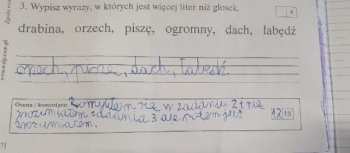 3. Wypisz wyrazy, w których jest więcej liter niż głosek.
4
drabina, orzech, piszę, ogromny, dach, łabędź
orzech, piszę, dach, łabędź
Ocena / komentarz: Pomyliłem się w zadaniu 2 i nie
zrozumiałem zdania 3 ale potem już
zrozumiałem.
12 15